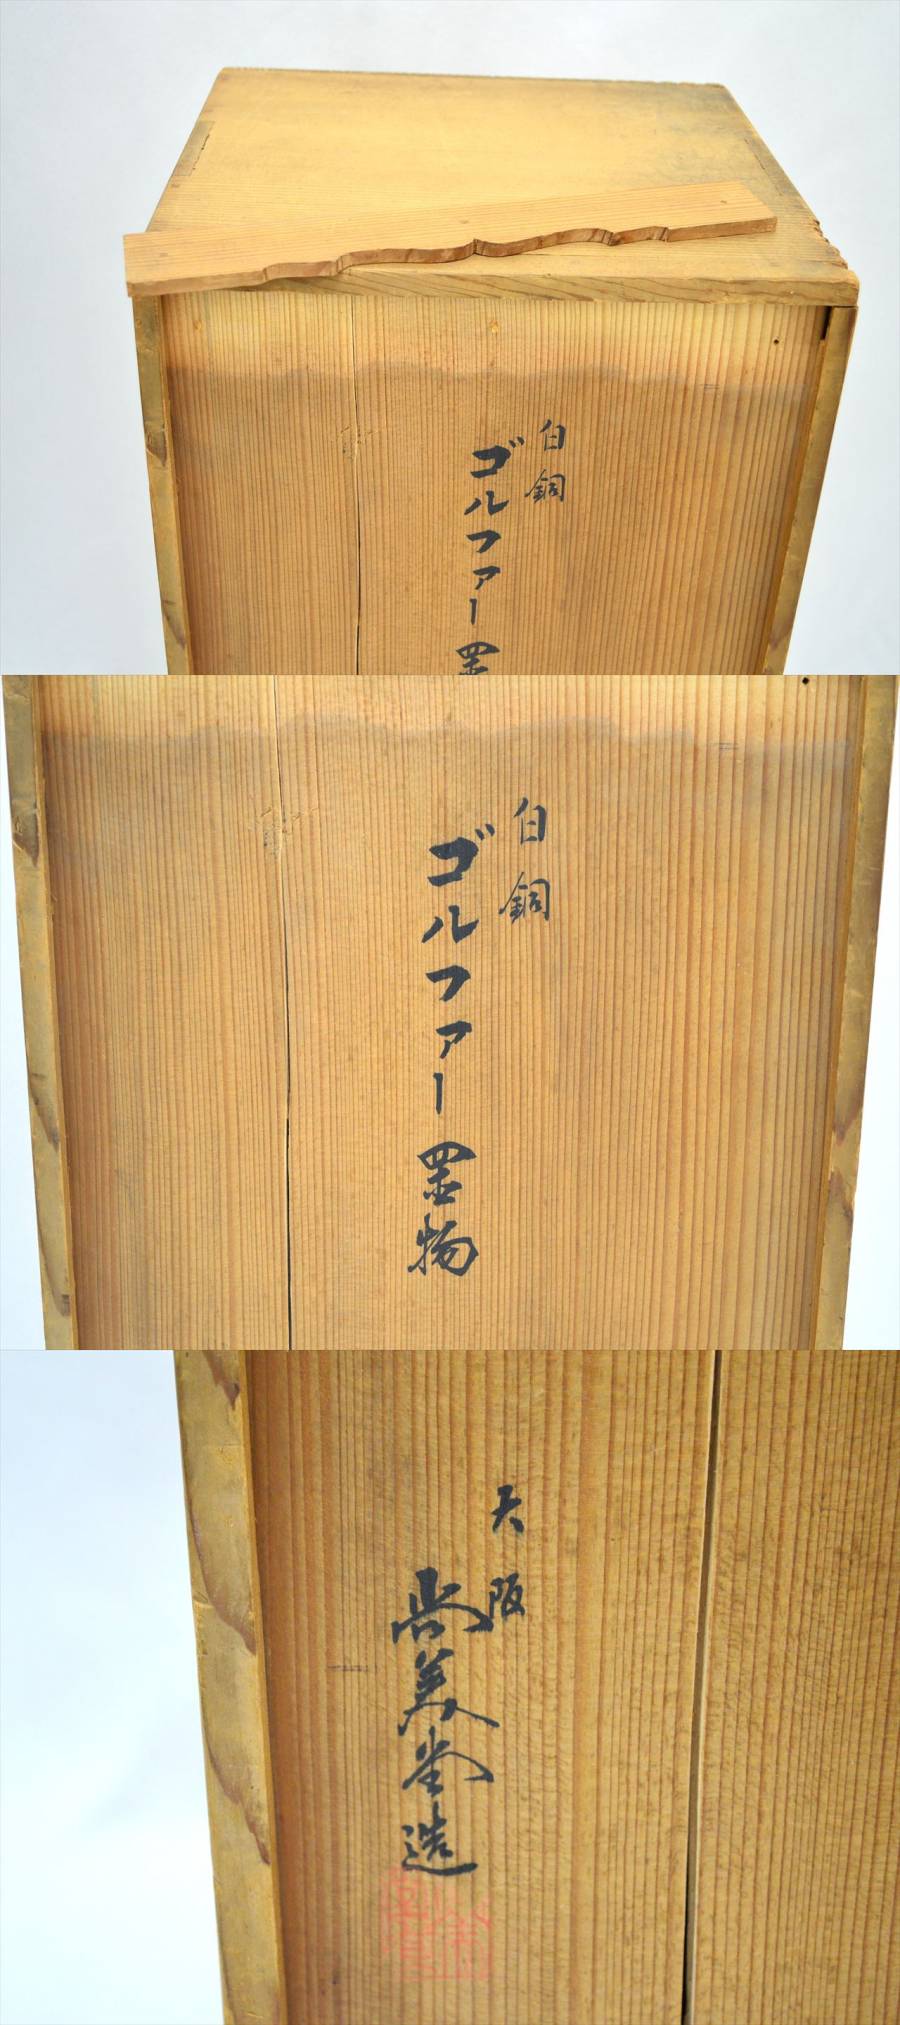 白銅
ゴルファー置物
白銅
ゴルファー置物
大阪
尚美堂造